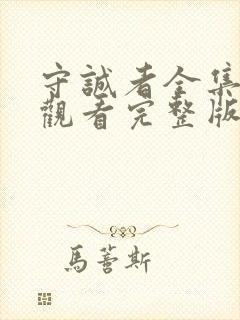 守誠者全集
觀看完整版
馬蕾斯